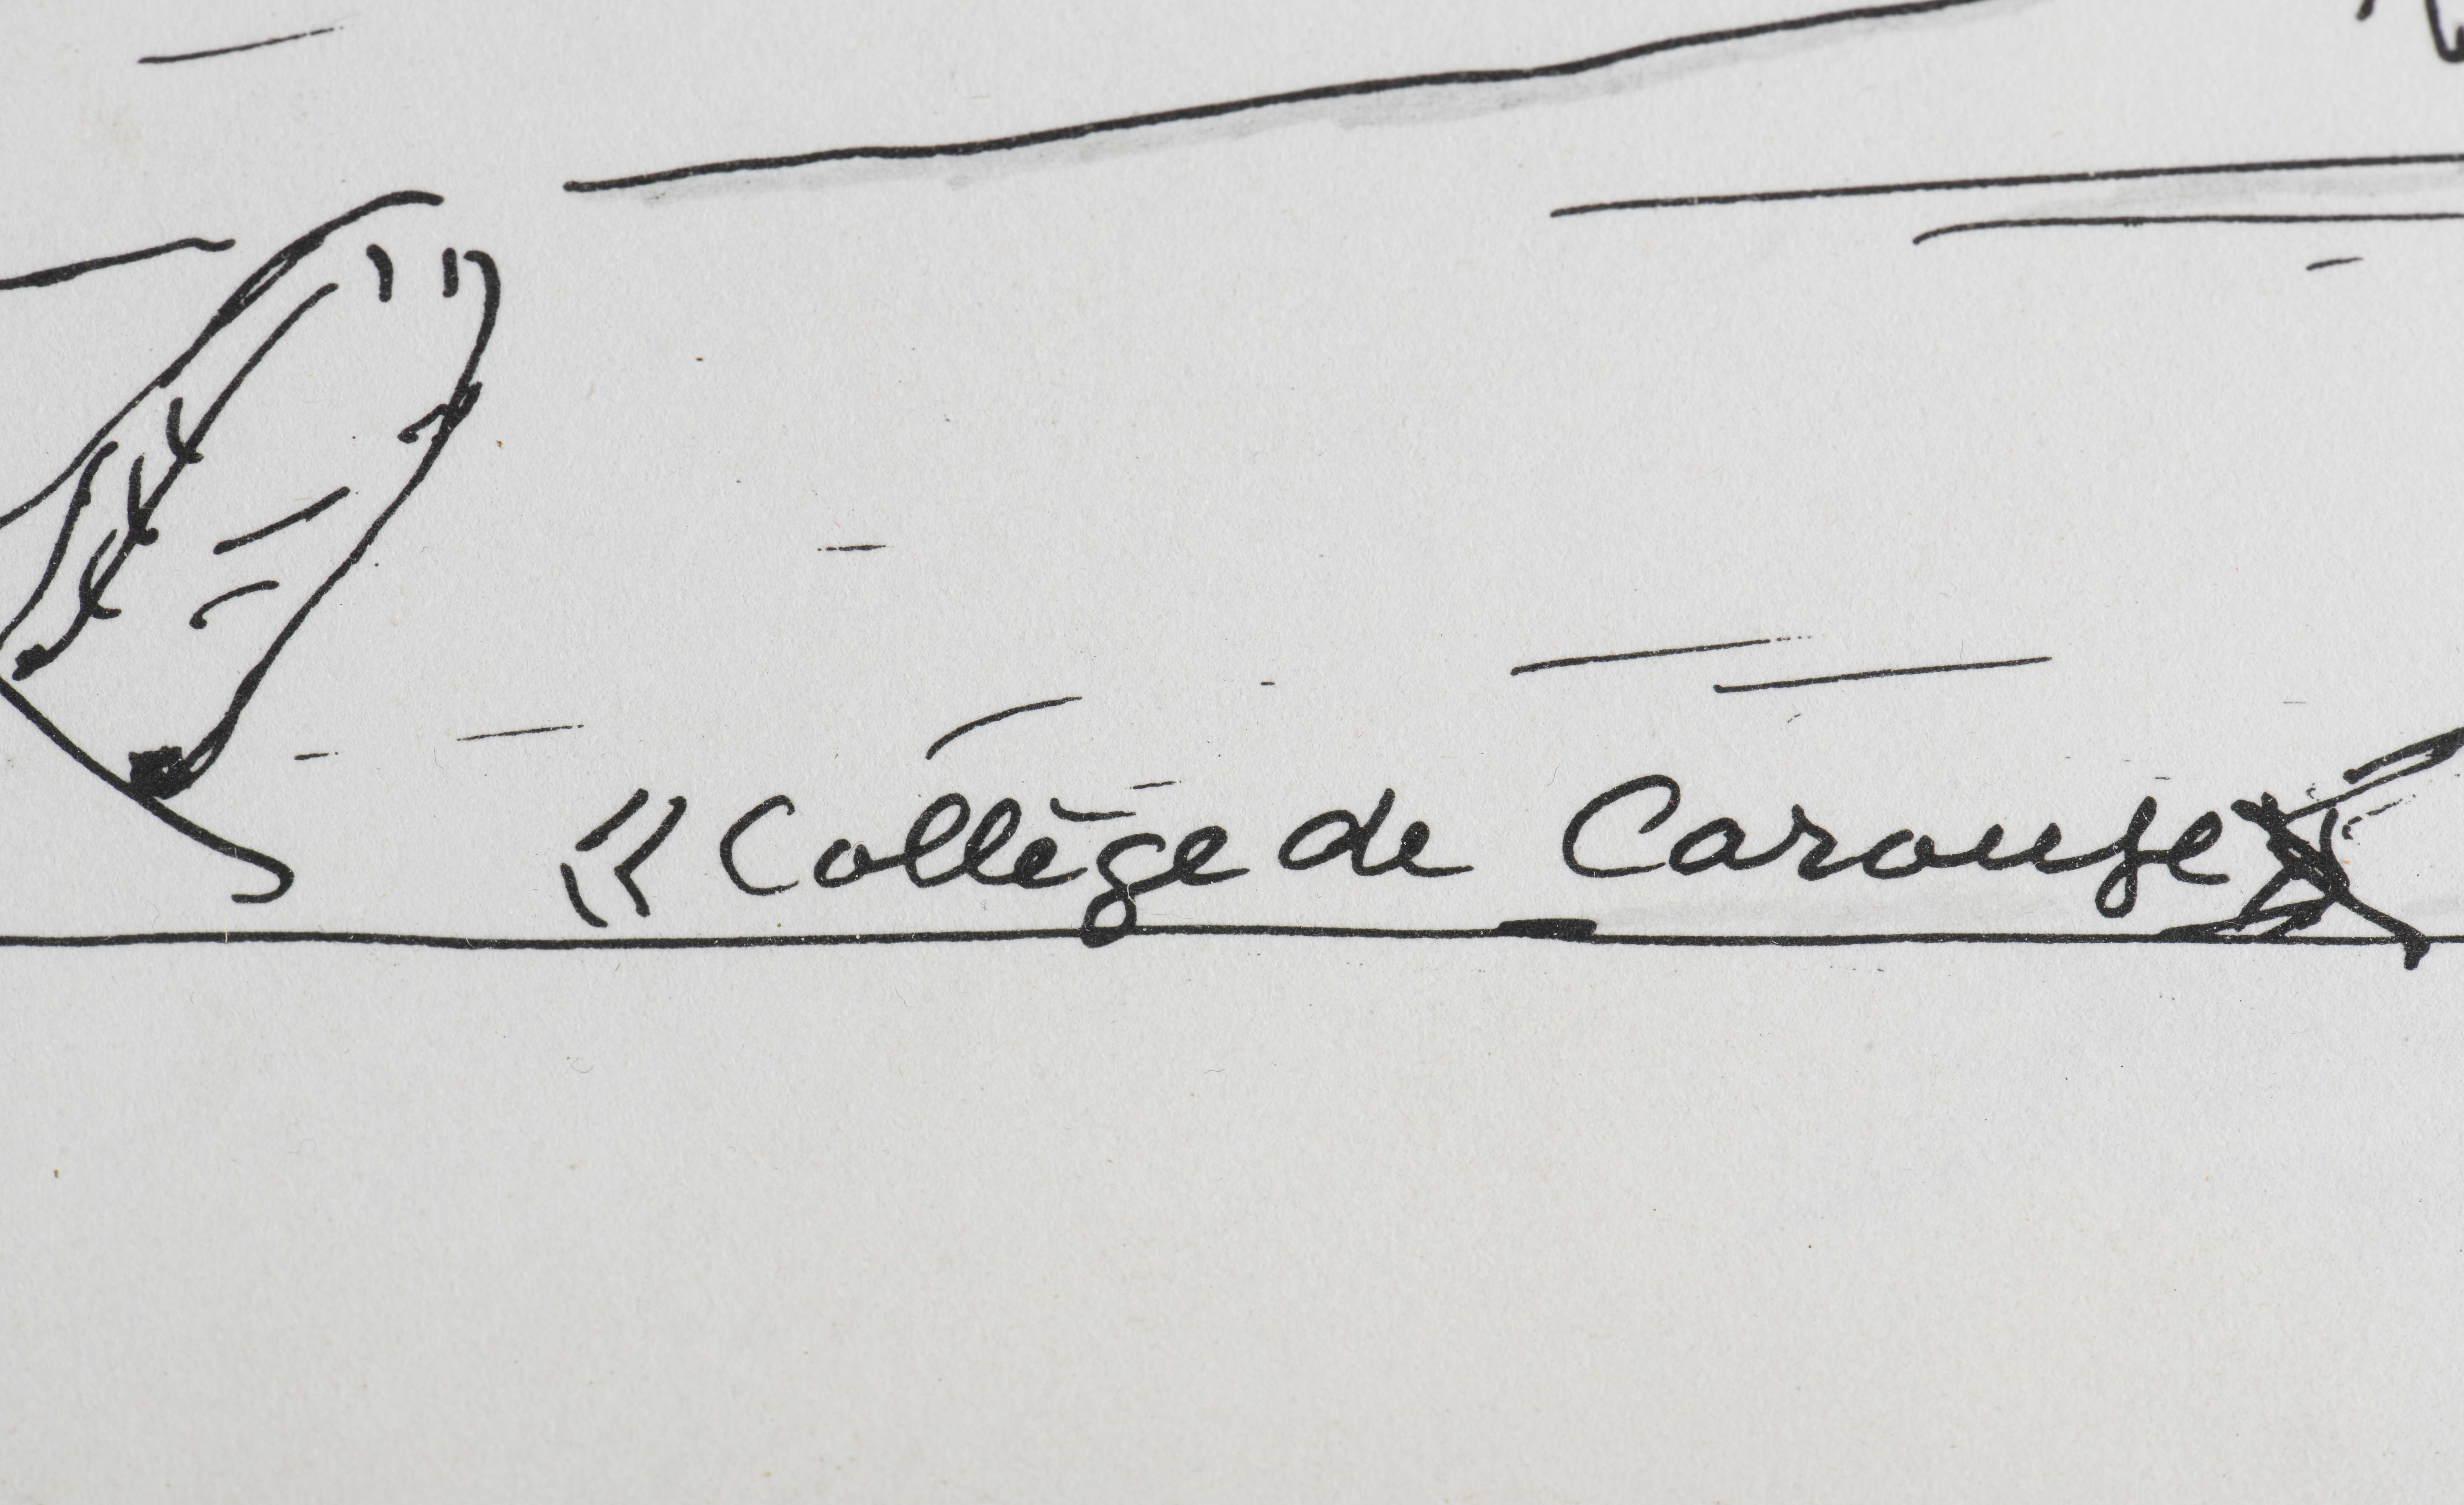 « Collège de Carouge